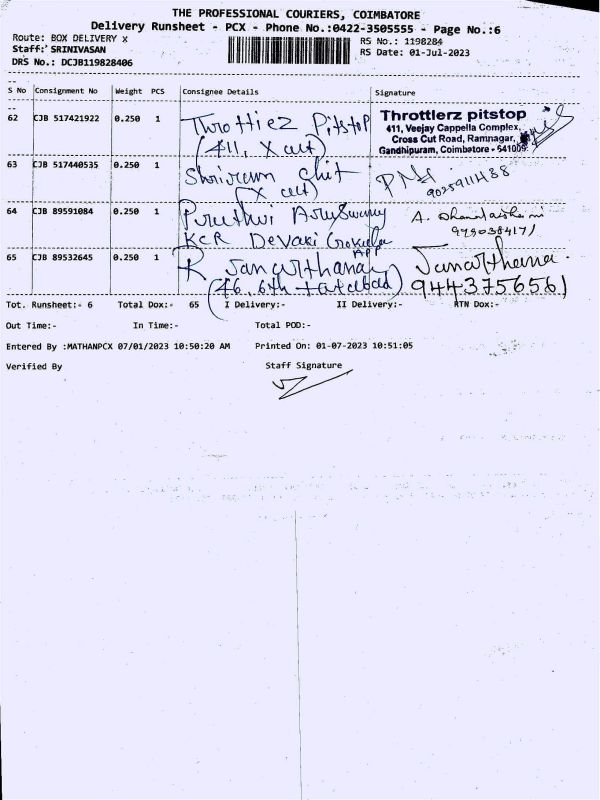 THE PROFESSIONAL COURIERS, COIMBATORE
Delivery Runsheet - PCX - Phone No.:0422-3505555 - Page No.:6
Route: BOX DELIVERY X
RS No.: 1198284
Staff: SRINIVASAN
RS Date: 01-Jul-2023
DRS No.: DCJB119828406
S No Consignment No Weight PCS Consignee Details Signature
62 CJB 517421922 0.250 1 Throttlez Pitstop
(411, X cut)
Throttlerz pitstop
411, Veejay Cappella Complex,
Cross Cut Road, Ramnagar,
Gandhipuram, Coimbatore - 641009
63 CJB 517440535 0.250 1 Shriram Chit
(X cut)
64 CJB 89591084 0.250 1
KCR Devaki Gokula
APP
65 CJB 89532645 0.250 1 R Janarthanan
(46, 6th tatabad)
Janarthana
9443756561
Tot. Runsheet:- 6 Total Dox:- 65 I Delivery:- II Delivery:- RTN Dox:-
Out Time:- In Time:- Total POD:-
Entered By :MATHANPCX 07/01/2023 10:50:20 AM Printed On: 01-07-2023 10:51:05
Verified By Staff Signature